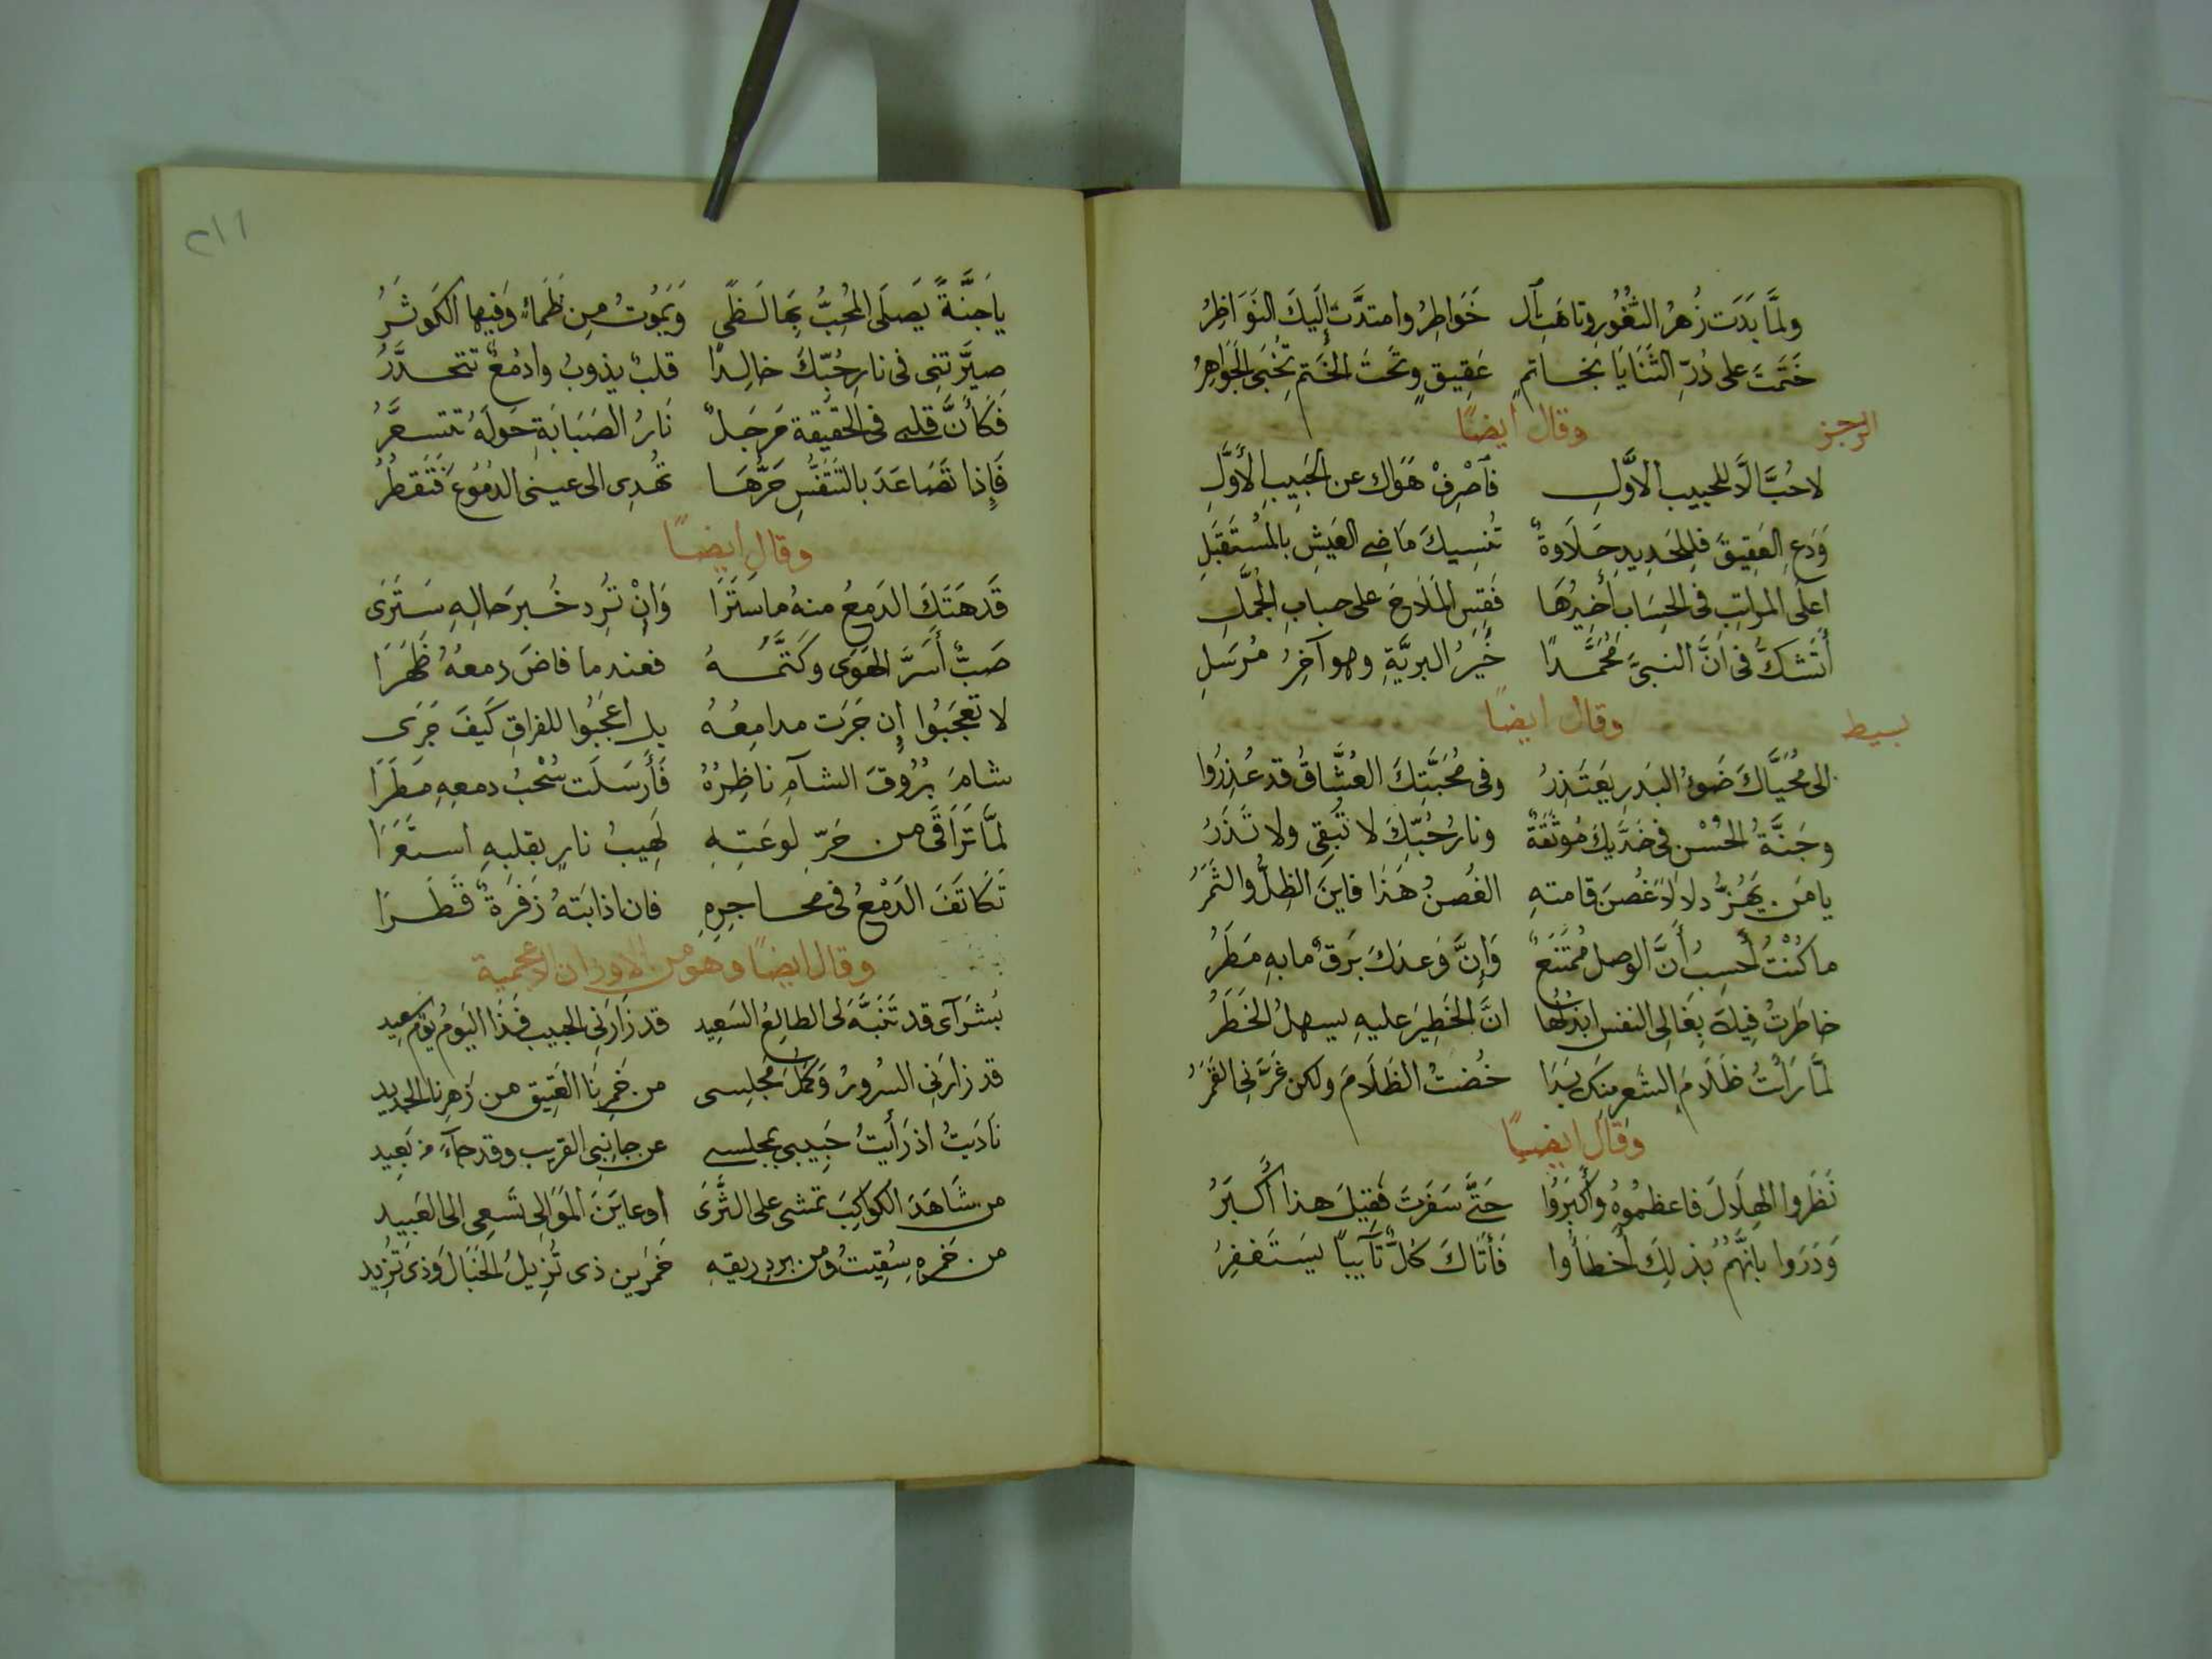 ولمَّا بَدَت زُهرُ الثُّغُورِ وتاهَتِ ٱل خَوَاطِرُ وامتدَّت إِلَيكَ النَوَاظِرُ
خَتَمتَ على دُرِّ الثَنَايَا بخاتمٍ عَقِيقٍ وتَحتَ الخَتمِ تُخبَى الجَوَاهِرُ
الرجز
وقال ايضًا
لا حُبَّ الَّا للحبيب الاَوَّلِ فٱصْرِفْ هَوَاك عن الحَبِيبِ الأَوَّلِ
وَدَعِ العَتِيقَ فللجَدِيدِ حَلَاوةٌ تُنسِيكَ مَاضِي العَيشِ بالمُستَقبَلِ
اعلَى المراتِبِ فى الحِسَابِ أَخِيرُهَا فَقِسِ المَلَاحَ على حسابِ الجُمَّلِ
أَتَشكُّ فى اَنَّ النبىَّ مُحَمَّدًا خَيرُ البريَّةِ وهو آخِرُ مُرسَلِ
بسيط
وقال ايضًا
الى مُحَيَّاكَ ضَوءُ البَدرِ يَعتَذِرُ وفى مُحَبَّتِكَ العُشَّاقُ قد عُذِرُوا
وجَنَّةُ الحُسْنِ فى خَدَّيكَ مُوثَقَةٌ ونارُ حُبِّكَ لا تُبقِى ولا تَذَرُ
يا مَن يَهُزُّ دلَالًا غُصنَ قامتهِ الغُصنُ هَذَا فاينَ الظِلُّ والثَمَرُ
ما كُنْتُ أَحسِبُ أَنَّ الوصلَ مُمتَنَعٌ وَإِنَّ وَعدَكَ بَرقٌ مابهِ مَطَرُ
خاطَرتُ فِيكَ بِغَالِى النفس ابذلُها انَّ الخَطِيرَ عليهِ يسهلُ الخَطَرُ
لمَّا رَأَيتُ ظَلَامَ الشَعرِ منكَ بَدَا خُضتُ الظَلَامَ ولكن غَرَّنِى القَمَرُ
وقال ايضًا
نَظَروا الهِلَالَ فاعظمُوهُ وأَكبَرُوا حَتَّى سَفَرتَ فَقِيلَ هذا أَكبَرُ
وَدَرَوا بأنَّهُمُ بذلِكَ أَخطَأُوا فَأَتَاكَ كُلٌّ تآيبًا يَستَغفِرُ
٢١١
ياجَنَّةً يَصلَى المُحِبُّ بِهَا لَظًى وَيَمُوتُ مِن ظَمَاءٍ وَفيها الكَوثَرُ
صيَّرتَنِى فى نارِ حُبِّكَ خالِدًا قلبٌ يذوبُ وادمُعٌ تتحدَّرُ
فَكَأَنَّ قلبى فى الحَقِيقة مَرجَلٌ نَارُ الصَبَابَةِ حَولَهُ تتسعَّرُ
فَإِذا تَصَاعَدَ بالتَنَفُّسِ حَرُّهَا تُهدِى الى عينى الدُمُوعَ فَتَقطُرُ
وقال ايضًا
قَد هَتَكَ الدَمعُ منهُ ما سَتَرَا وَإنْ تُرِد خُبرَ حالِهِ سَتَرَى
صَبٌّ أَسَرَّ الهَوَى وكَتَّمَهُ فعند ما فاضَ دمعهُ ظَهَرَا
لا تعجَبُوا إِن جَرَت مدامِعُهُ بل اعجَبُوا للفراقِ كَيفَ جَرَى
شامَ بُرُوقَ الشآمِ ناظِرُهُ فَأَرسَلَت سُحْبُ دمعهِ مَطَرَا
لمَّا تَرَاقَى من حَرِّ لوعَتِهِ لَهِيبُ نارٍ بقلبِهِ استَعَرَا
تَكَاتَفَ الدَمْعُ فى محاجِرِهِ فان اذابَتهُ زَفرَةٌ قَطَرَا
وقال ايضًا وهو من الاوزان الاعجمية
بُشرَآى قد تَنَبَّهَ لى الطالِعُ السَعِيد قد زَارَنِى الحبيب فَهَذَا اليَومُ يَومُ عِيد
قد زارَنِى السُرورُ وَكَمَّلَ مَجلِسى من خَمرِنَا العَتِيق من زَهرِنا الجديد
نَادَيتُ اذ رَأَيتُ حَبِيبى بمجلسى عن جانِبِى القريب وقد جآءَ من بَعِيد
من شَاهَدَ الكواكِبَ تمشى على الثَّرَى او عايَنَ المَوَالِى تَسعى الى العَبيد
من خَمرِهِ سُقِيتُ ومن بردِ ريقهِ خَمرَين ذى تُزِيلُ الخَبَال وَذى تَزِيد